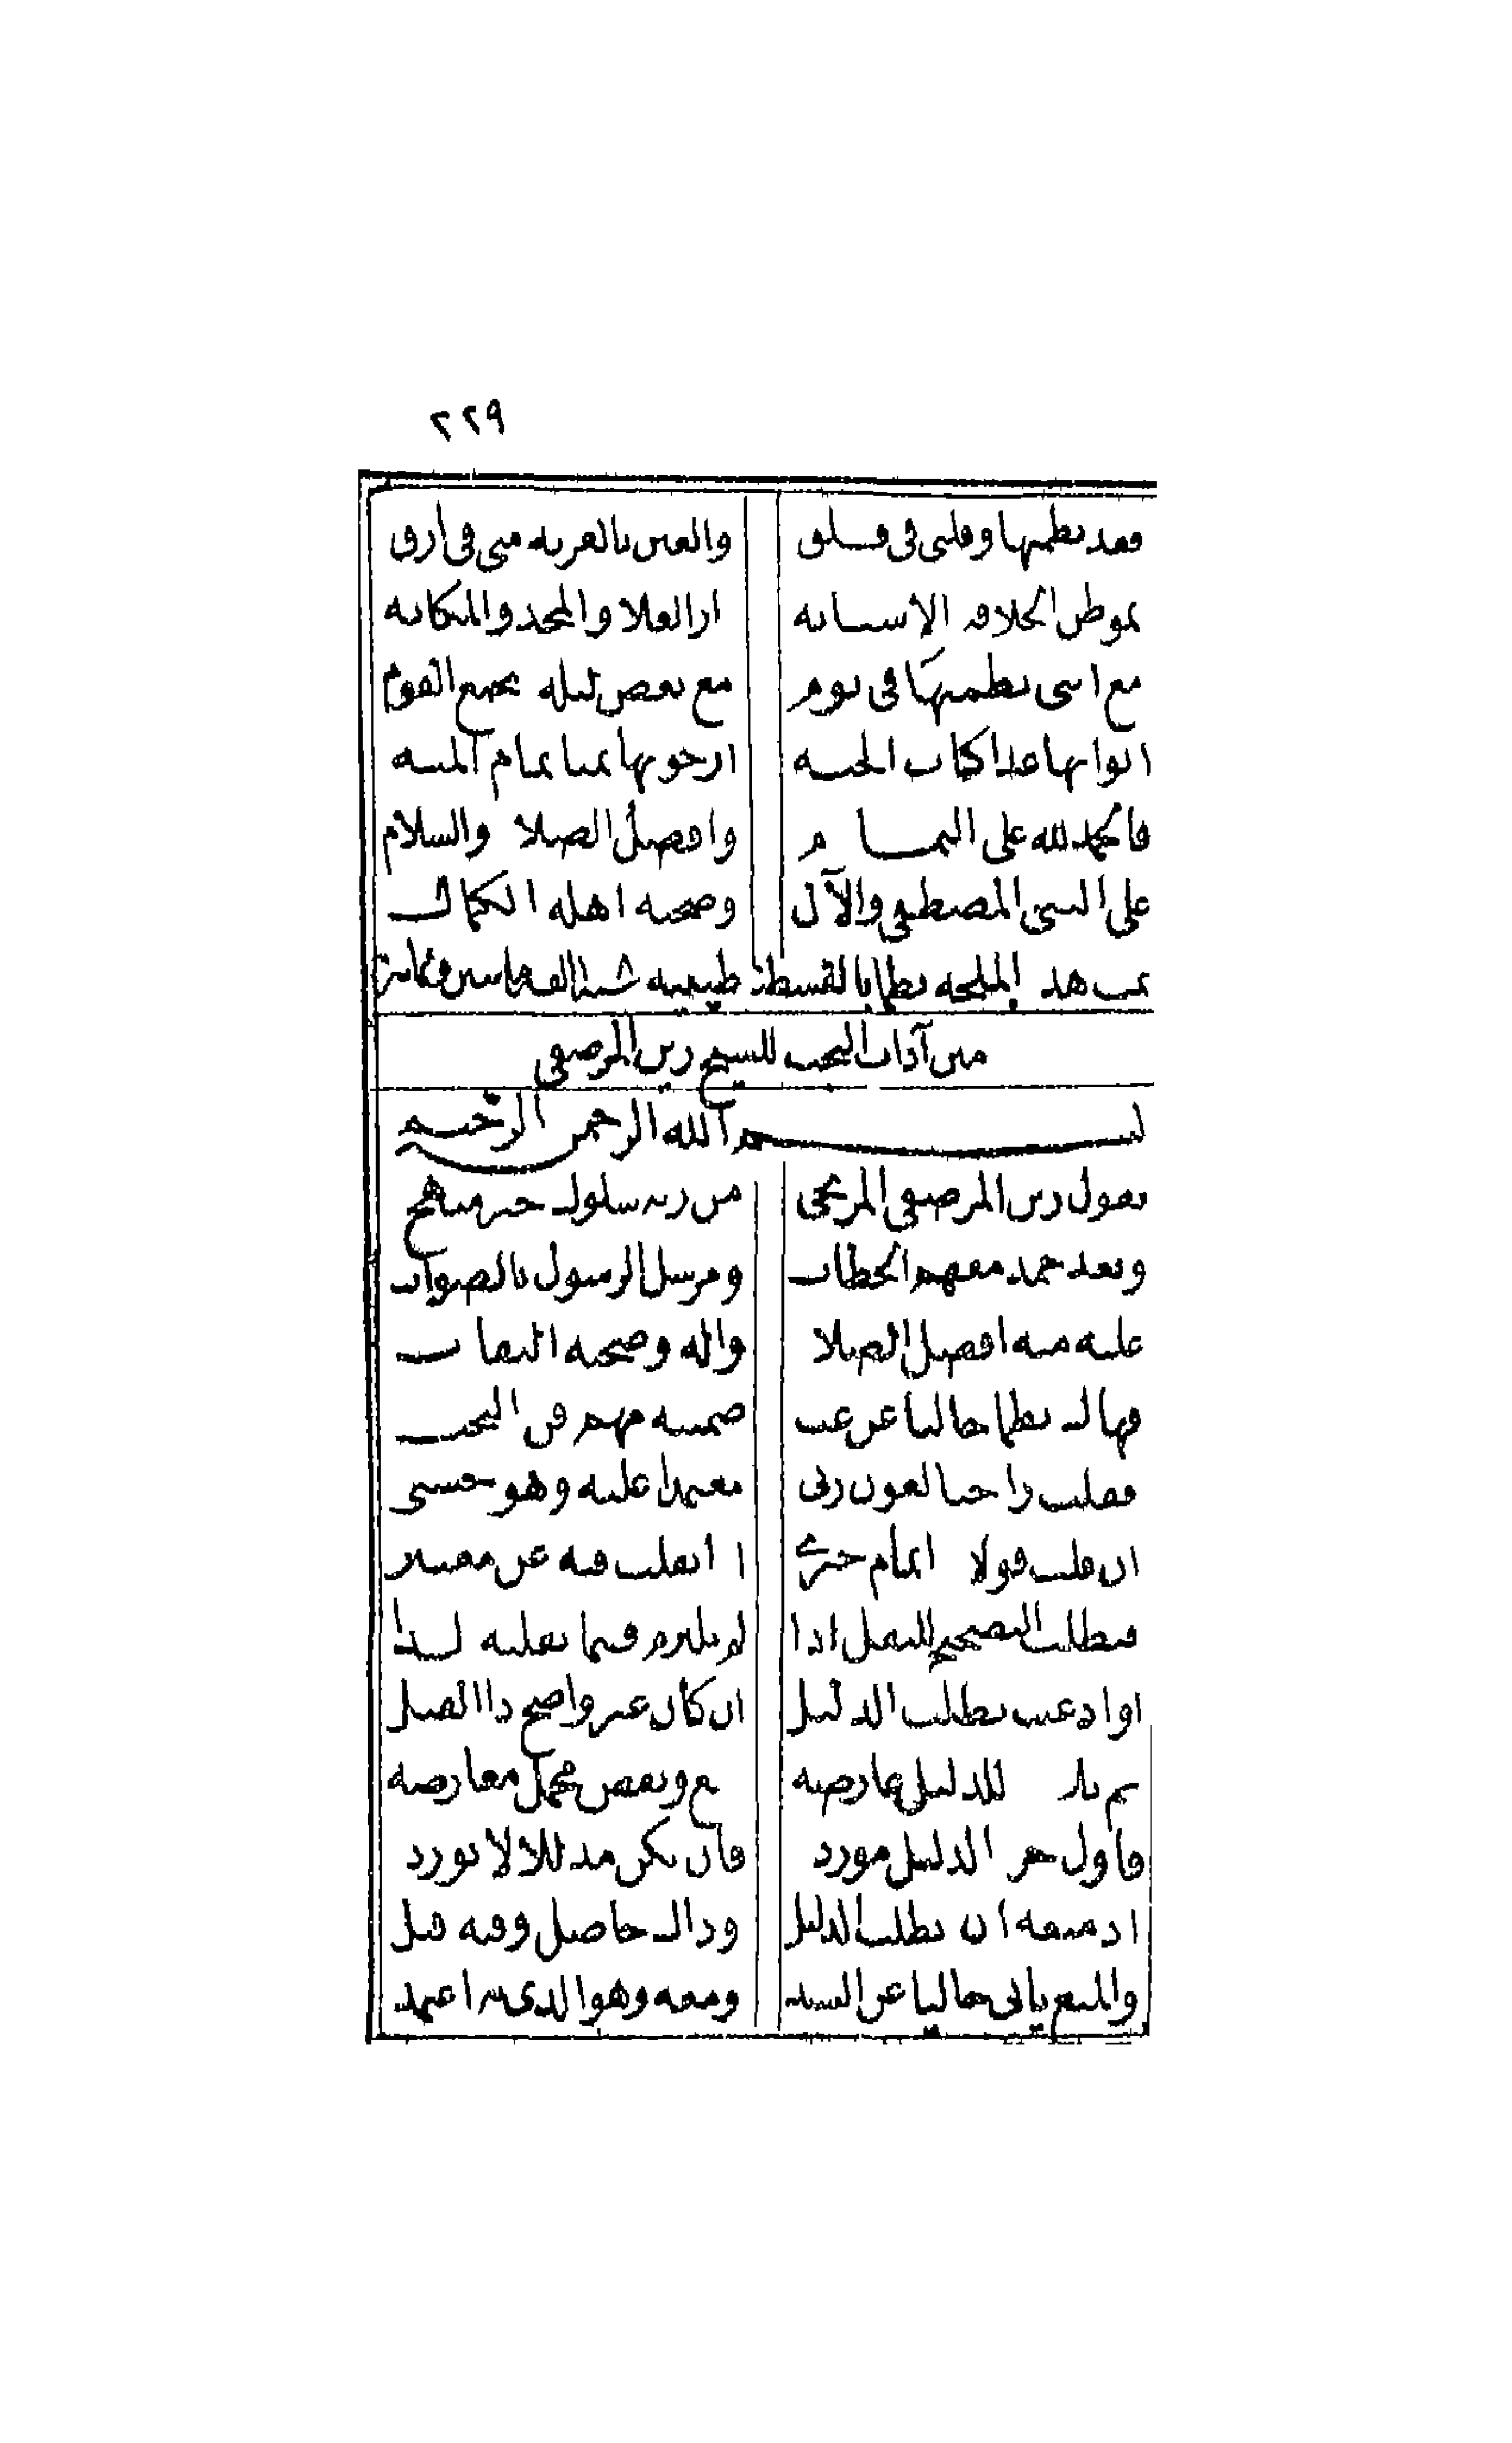 ٢٢٩
فقد نظمتها وقلبى فى قلق والعين بالغربة منى فى أرق
بموطن الخلافة الإستانه دار العلا والمجد والمكانه
مع انى نظمتها فى يوم مع بعض ليلة بجمع القوم
ابوابها عدا كتاب الجنه ارجو بها تمام المنه
فالحمد لله على التمام وافضل الصلاة والسلام
على النبى المصطفى والآل وصحبه اهله الكمال
تمت هذه الملحة نظما بالقسطنطينية سنة الف
متن آداب البحث للشيخ زين المرصفى
بسم الله الرحمن الرحيم
يقول زين المرصفى المرتجى من ربه سلوك خير منهج
وبعد حمد مفهم الخطاب ومرسل الرسول بالصواب
عليه منه افضل الصلاة واله وصحبه الثقات
فهاك نظما خاليا عن عبث ضمنته مهم فن البحث
فقلت راجيا لعون ربى معتمدا عليه وهو حسبى
ان قلت قولا تمام خبرى نقلت فيه عن معتبر
فيطلب التصحيح للنقل اذا لم يلتزم فيما نقلته لذا
او ادعيت يطلب الدليل ان كان غير واضح ذا القيل
ثم للدليل عارضه منع ونقض مجمل معارضه
فاول جزء الدليل مورد فان يكن مدللا لا يورد
اذ منعه ان يطلب الدليل وذاك حاصل وفيه قيل
والمنع يأتى خاليا عن السند ومعه وهو الذى به اعتمد